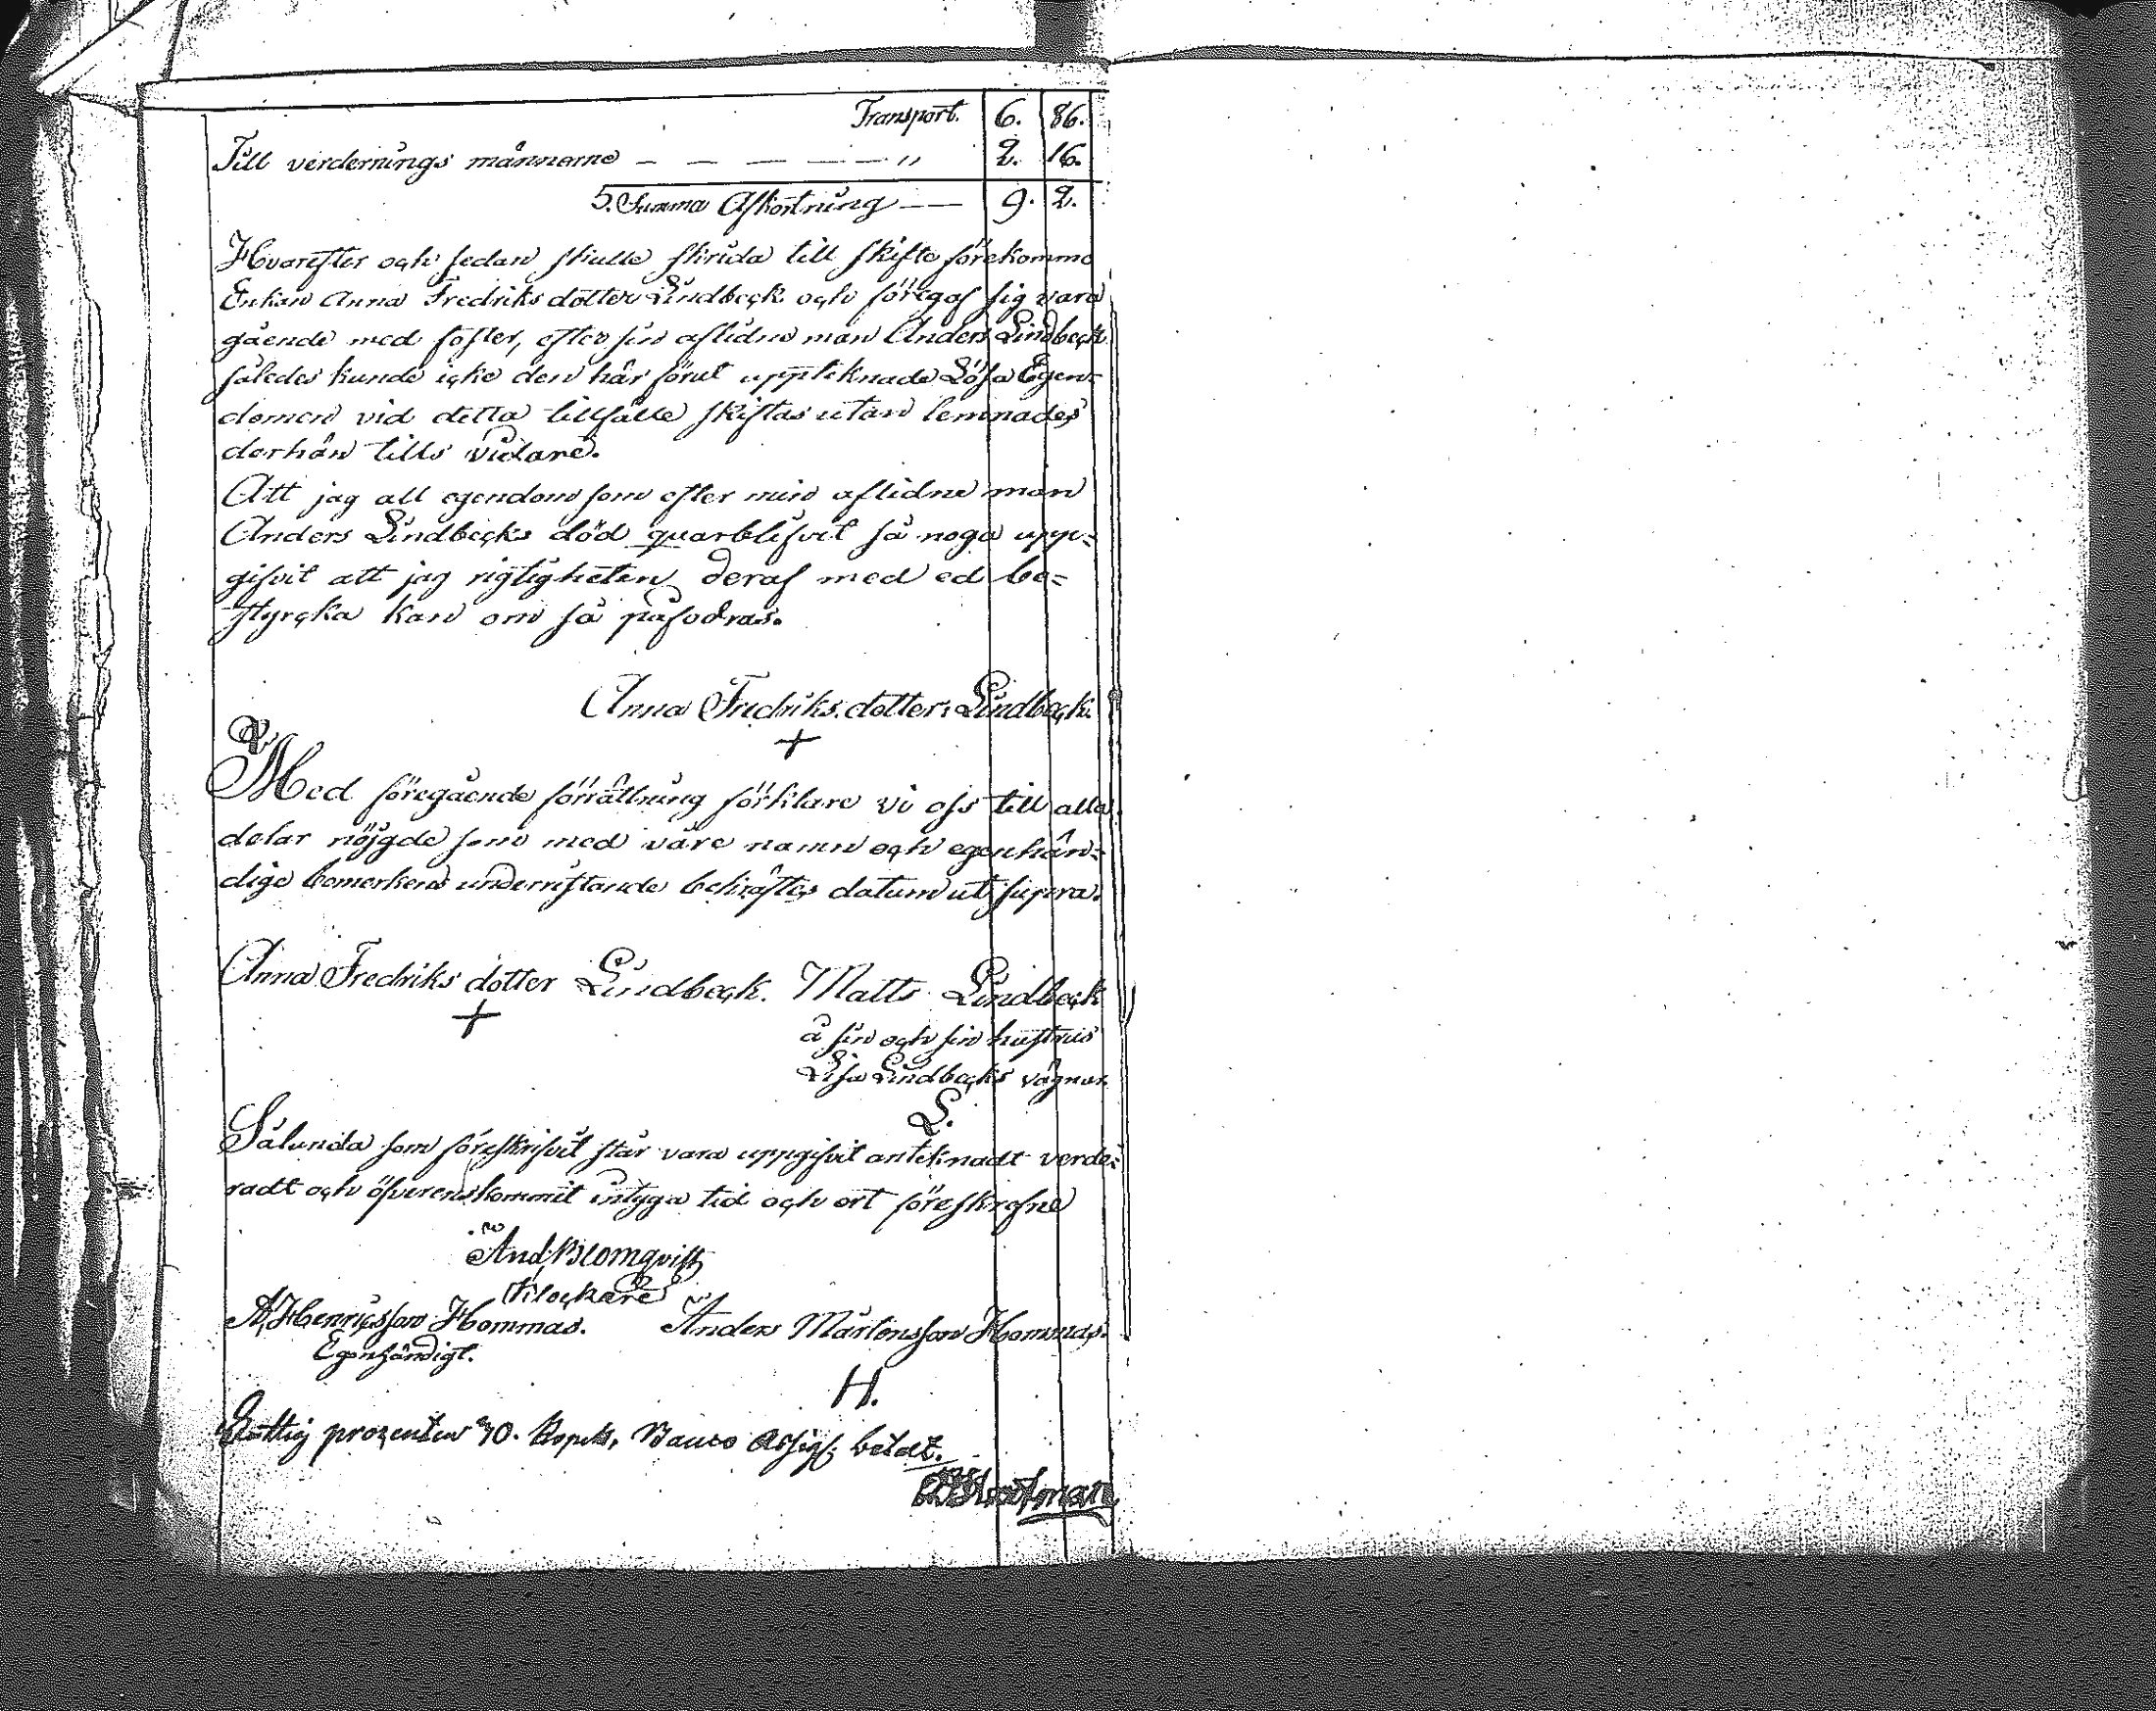 Transport. 6. 86.
Till verdernings männerne — — — — — " 2. 16.
5. Summa Afkortning — — 9. 2.
Hvarefter och sedan skulle skrida till skifte förekomme
Enkan Anna Fredriks dotter Lindbeck och föregaf sig vara
gående med foster, efter sin aflidne man Anders Lindbeck
således kunde icke den här förut uppteknade Lösa Egen-
domen vid detta tillfälle skiftas utan lemnades
derhän tills vidare.
Att jag all egendom som efter min aflidne man
Anders Lindbecks död quarblifvit så noga upp-
gifvit att jag rigtigheten deraf med ed be-
styrcka kan om så påfodras.
Anna Fredriks dotter Lindbeck.
+
Med föregående förrättning förklare vi oss till alla
delar nöjgde som med våre namn och egenhän-
dige bomerken underristande bekräftes datum ut supra.
Anna Fredriks dotter Lindbeck. Matts Lindbeck
+
å sin och sin hustrus
Lisa Lindbecks vägnar.
L.
Sålunda som föreskrifvit står vara uppgifvit anteknadt verde-
radt och öfverenskommit intyga tid och ort föreskrefne
And. Blomqvist
Klockare
A. Henricsson Hommas. Anders Mårtensson Hommas.
Egenhändigt.
H.
Fattig prozenten 40. Kopek, Banco Assign. betalt.